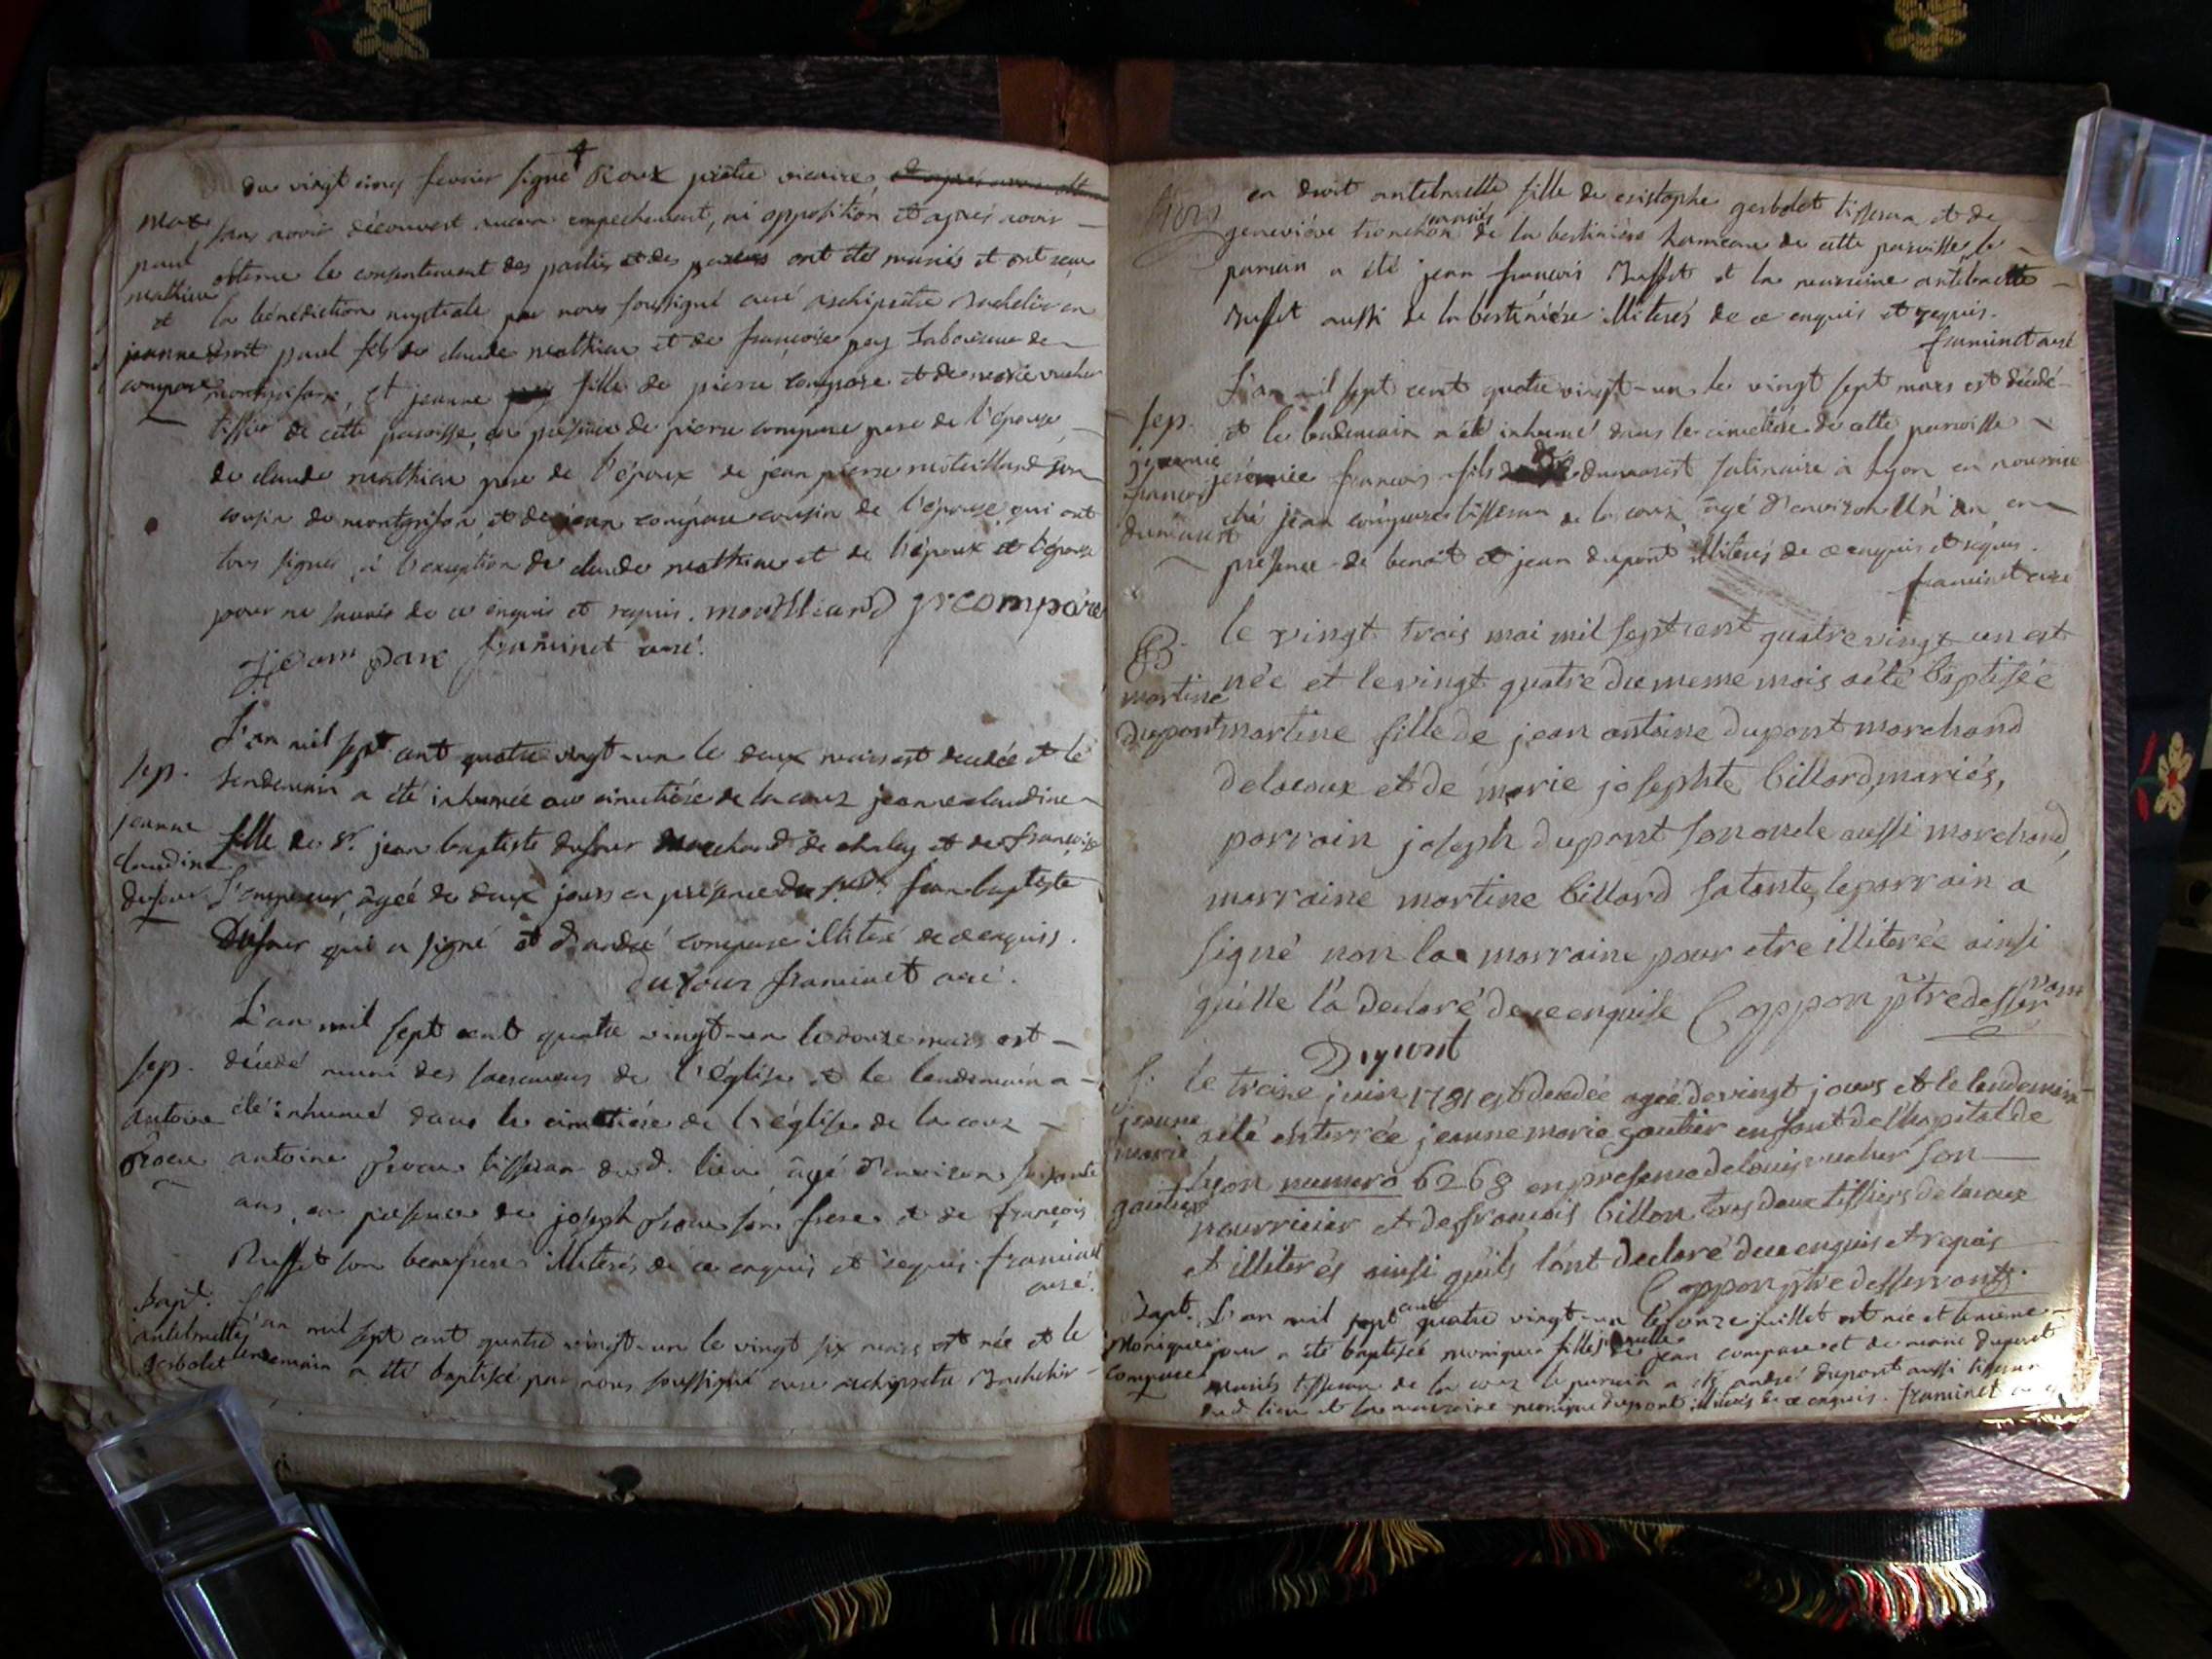 du vingt cinq fevrier signé Roux prêtre vicaire,
mat sans avoir découvert aucun empechement, ni opposition et après avoir
paul obtenu le consentement des parties et des parens ont été mariés et ont reçu
mathieu
et la bénédiction nuptiale par nous soussigné curé archiprêtre Bachelier en
jeanne droit paul fils de claude mathieu et de françoise pey laboureur de
compare et jeanne fille de pierre compare et de marie vucher
tissier de cette paroisse, en présence de pierre compare pere de l'épouse
de claude mathieu pere de l'époux de jean pierre moteilland son
cousin de montgrifon, et de jean compare cousin de l'épouse qui ont
tous signés, à l'exception de claude mathieu et de l'époux et l'épouse
pour ne savoir de ce enquis et requis. moothliand prcompare
framinet curé.
L'an mil sept cent quatre vingt-un le deux mars est decedée et le
sep. lendemain a été inhumée au cimetière de la coux jeanne claudine
jeanne fille de Sr. jean baptiste dufour marchand de chaley et de françoise
claudine
dufour L'empereur, agée de deux jours en présence du Sr. jean baptiste
Dufour qui a signé et d'andré compare illiteré de ce enquis.
dufour framinet curé.
L'an mil sept cent quatre vingt-un le douze mars est
sep. décédé muni des sacremens de l'église et le lendemain a
antoine été inhumé dans le cimetière de l'église de la coux
antoine tisseran du d. lieu, âgé d'environ soixante
ans, en présence de joseph son frere et de françois
Buffet son beaufrere illiterés de ce enquis et requis. framinet
curé.
Bapt. L'an mil sept cent quatre vingt-un le vingt six mars est née et le
antelmette
gerbolet lendemain a été baptisé par nous soussigné curé archiprêtre Bachelier
en droit antelmette fille de cristophe gerbolet tisseran et de
geneviève tronchon mariés de la bertinière hameau de cette paroisse, le
parrain a été jean françois Buffet et la marraine antelmette
Buffet aussi de la bertinière illiterés de ce enquis et requis.
framinet curé
L'an mil sept cent quatre vingt-un le vingt sept mars est décédé
sep. et le lendemain a été inhumé dans le cimetière de cette paroisse
jeremie jéremie françois fils de dumarest satinaire à Lyon en nourrice
françois
dumarest ché jean compare tisseran de la coux, âgé d'environ un an en
présence de benoit et jean dupont illiterés de ce enquis et requis.
framinet curé
B. le vingt trois mai mil sept cent quatre vingt un est
martine née et le vingt quatre du meme mois a été baptisée
dupont martine fille de jean antoine dupont marchand
de lacoux et de marie josephte billard, mariés,
parrain joseph dupont son oncle aussi marchand,
marraine martine billard sa tante, le parrain a
signé non la marraine pour etre illiterée ainsi
quelle l'a declaré de ce enquise Coppon ptre desservant
Dupont
S. le treize juin 1781 est decedée agée de vingt jours et le lendemain
jeanne a été enterrée jeanne marie gautier enfant de l'hopital de
marie Lyon numero 6268 en presence de louis vucher son
gautier nourricier et de françois billon tous deux tissiers de lacoux
et illiterés ainsi quils l'ont declaré de ce enquis et requis
Coppon ptre desservant.
Bapt. L'an mil sept cent quatre vingt-un le onze juillet est née et le même
Monique jour a été baptisée monique fille jumelle de jean compare et de marie dupont
compare mariés tisseran de la coux le parrain a été andré dupont aussi tisseran
du d. lieu et la marraine monique dupont illiterés de ce enquis. framinet curé